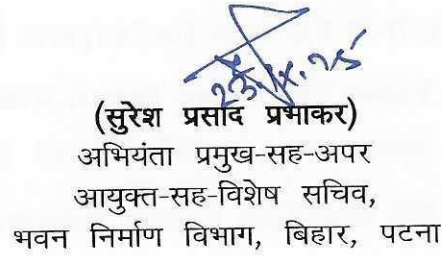 23/x.25
(सुरेश प्रसाद प्रभाकर)
अभियंता प्रमुख-सह-अपर
आयुक्त-सह-विशेष सचिव,
भवन निर्माण विभाग, बिहार, पटना